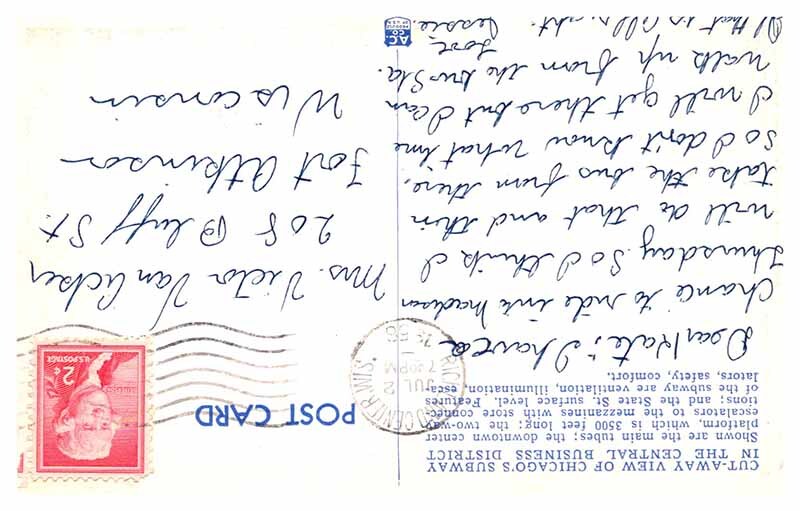 CUT-AWAY VIEW OF CHICAGO'S SUBWAY
IN THE CENTRAL BUSINESS DISTRICT
Shown are the main tubes; the downtown center
platform, which is 3500 feet long; the two-way
escalators to the mezzanines with store connec-
tions; and the State St. surface level. Features
of the subway are ventilation, illumination, esca-
lators, safety, comfort.
Dear Kate; I have a
chance to ride into Madison
Thursday. So I think I
will do that and then
take the bus from there,
So I don't know what time
I will get there but I can
walk up from the bus Sta.
Love,
Jessie.
If that is all right.
A.C.
CO.
PRODUCT
OF U.S.A.
POST CARD
CENTER WIS.
JUL 2
7 30 PM
56
U.S. POSTAGE
2¢
Mrs. Victor Van Acker
208 Bluff St.
Fort Atkinson
Wisconsin